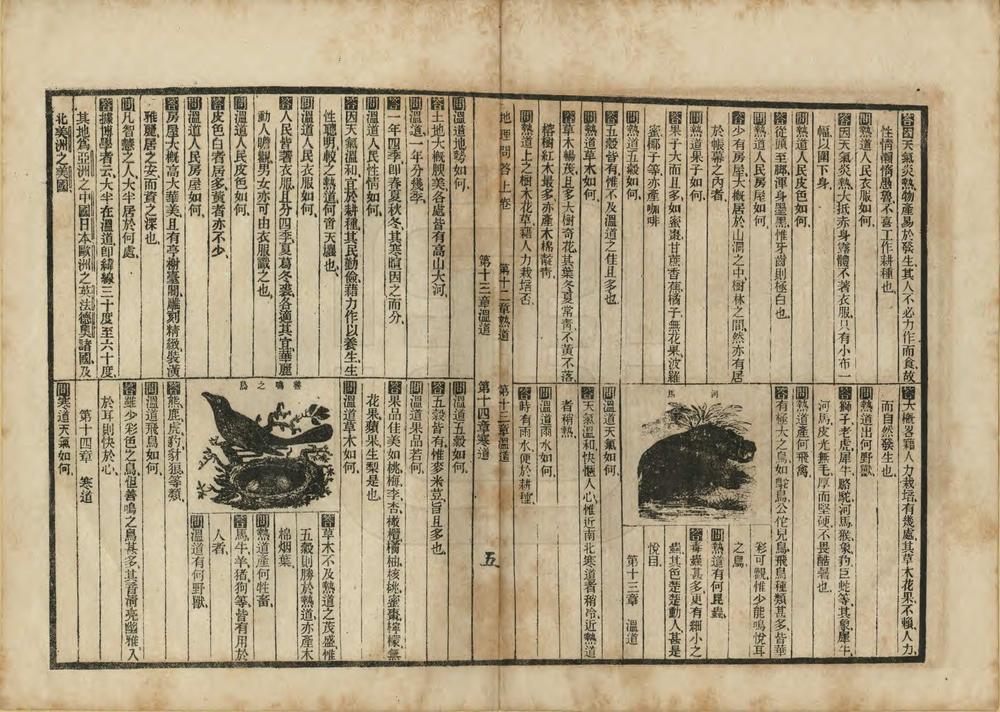 答因天氣炎熱、物產易於發生、其人不必力作而食、故
性情懶惰愚魯、不喜工作耕種也、
問熱道人民衣服如何、
答因天氣炎熱、大抵赤身露體、不著衣服、只有小布一
幅、以圍下身、
問熱道人民皮色如何、
答從頭至腳、渾身墨黑、惟牙齒則極白也、
問熱道人民房屋如何、
答少有房屋、大概居於山洞之中、樹林之間、然亦有居
於帳幕之內者、
問熱道果子如何、
答果子大而且多、如蜜棗、甘蔗、香蕉、橘子、無花果、波羅
蜜、椰子等、亦產咖啡、
問熱道五穀如何、
答五穀皆有、惟不及溫道之佳且多也、
問熱道草木如何、
答草木暢茂、且多大樹奇花、其葉冬夏常靑、不黃不落、
榕樹紅木最多、亦產木棉靛靑、
問熱道上之樹木花草、藉人力栽培否、
答大概畧藉人力栽培、有幾處其草木花果、不賴人力、
而自然發生也、
問熱道出何野獸、
答獅子、老虎、犀牛、駱駝、河馬、猴、象、豹、巨蛇等、其象、犀牛、
河馬、皮光無毛、厚而堅硬、不畏酷暑也、
問熱道產何飛禽、
答有極大之鳥、如駝鳥、公佗兒鳥、飛鳥種類甚多、皆華
彩可觀、惟少能鳴悅耳
之鳥、
問熱道有何昆蟲、
答毒蟲甚多、更有細小之
蟲、其色楚楚動人、甚是
悅目、
第十三章 溫道
河馬
問溫道天氣如何、
答天氣溫和、快愜人心、惟近南北寒道者稍冷、近熱道
者稍熱、
問溫道雨水如何、
答時有雨水、便於耕種、
地理問答上卷
第十二章熱道
第十三章溫道
第十三章溫道
第十四章寒道
五
問溫道地勢如何、
答土地大概腴美、各處皆有高山大河、
問溫道、一年分幾季、
答一年四季、卽春夏秋冬、其寒暄因之而分、
問溫道人民性情如何、
答因天氣溫和、宜於耕種、其民勤儉、藉力作以養生、生
性聰明、較之熱道、何啻天壤也、
問溫道人民衣服如何、
答人民皆著衣服、且分四季、夏葛冬裘、各適其宜、華麗
動人瞻觀、男女亦可由衣服識之也、
問溫道人民皮色如何、
答皮色白者居多、黃者亦不少、
問溫道人民房屋如何、
答房屋大概高大華美、且有亭樹臺閣、雕刻精緻、裝潢
雅麗、居之安而資之深也、
問凡智慧之人、大半居於何處、
答據博學者云、大半在溫道、卽緯線三十度至六十度、
其地爲亞洲之中國日本、歐洲之英法德奧諸國、及
北美洲之美國、
問溫道五穀如何、
答五穀皆有、惟麥米荳、旨且多也、
問溫道果品若何、
答果品佳美、如桃、梅、李、杏、橄欖、橘、柚、核桃、蜜棗、檸檬、無
花果、蘋果、生梨是也、
問溫道草木如何、
答草木不及熱道之茂盛、惟
五穀則勝於熱道、亦產木
棉烟葉、
問熱道產何牲畜、
答馬、牛、羊、猪、狗等、皆有用於
人者、
問溫道有何野獸、
善鳴之鳥
答熊、鹿、虎、豹、豺、狼等類、
問溫道飛鳥如何、
答雖少彩色之鳥、但善鳴之鳥甚多、其音淸亮幽雅、入
於耳則快於心、
第十四章 寒道
問寒道天氣如何、